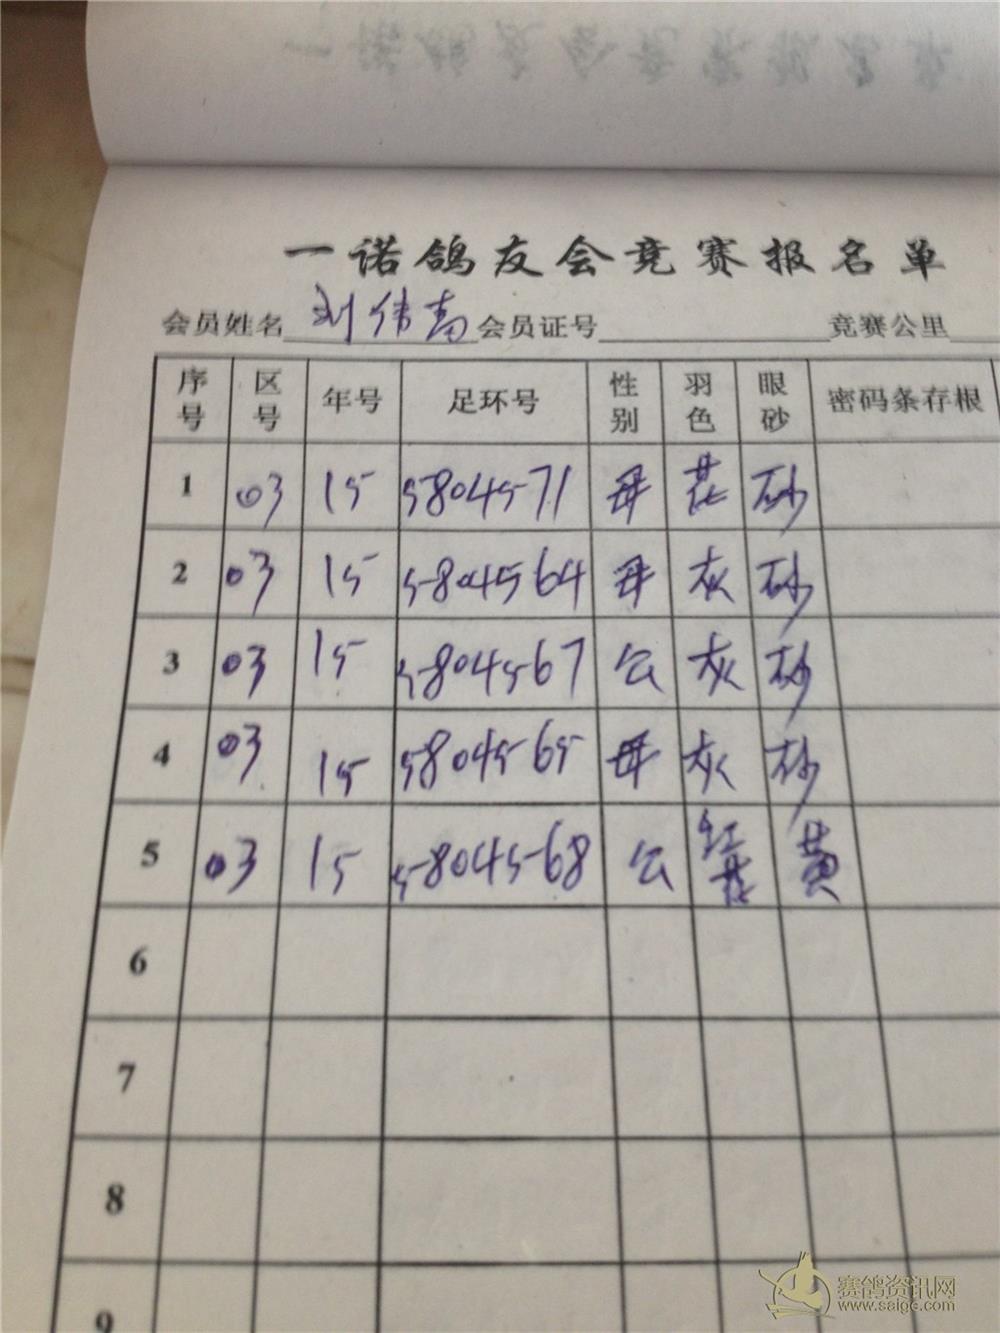 一诺鸽友会竞赛报名单
会员姓名 刘伟 会员证号 竞赛公里
序号 区号 年号 足环号 性别 羽色 眼砂 密码条存根
1 03 15 5804571 母 花 砂
2 03 15 5804564 母 灰 砂
3 03 15 5804567 公 灰 砂
4 03 15 5804565 母 灰 砂
5 03 15 5804568 公 红花 黄
6
7
8
9
赛鸽资讯网
www.saige.com